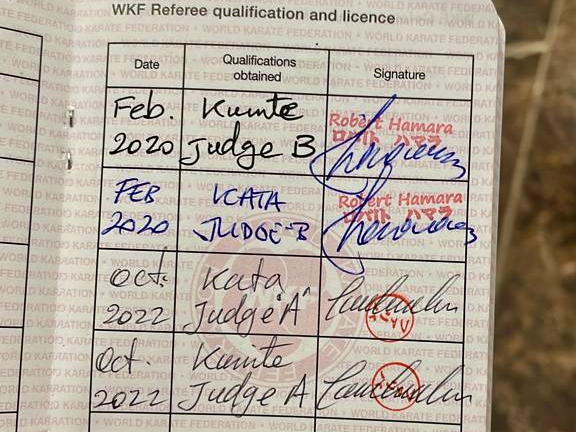 WKF Referee qualification and licence
Date
Qualifications
obtained
Signature
Feb.
2020
Kumite
Judge B
Robert Hamara
ロバト ハマラ
FEB
2020
KATA
JUDGE-B
Robert Hamara
ロバト ハマラ
Oct.
2022
Kata
Judge "A"
Oct.
2022
Kumite
Judge A
WORLD KARATE FEDERATION